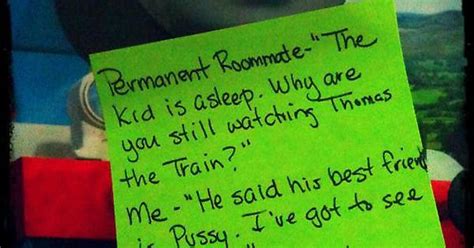 Permanent Roommate-"The
Kid is asleep. Why are
you still watching Thomas
the Train?"
Me-"He said his best friend
is Pussy. I've got to see